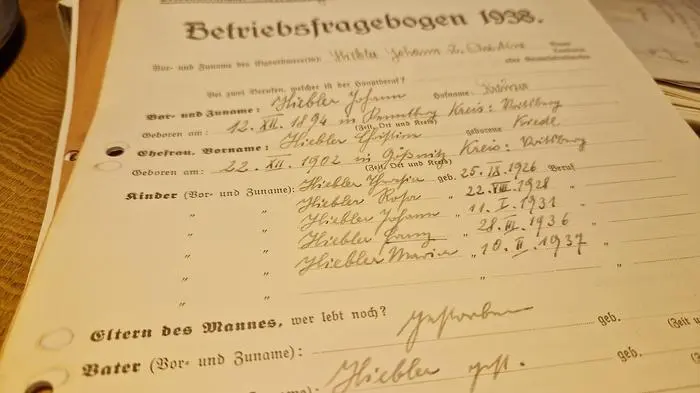 Betriebsfragebogen 1938.
Vor- und Zuname des Eigentümer(s): Hiebler Johann u. Christine
Bei zwei Berufen, welcher ist der Hauptberuf?
Vor- und Zuname: Hiebler Johann Hofname:
Geboren am: 12. XII. 1894 in Kreis: Voitsberg
(Zeit, Ort und Kreis)
Ehefrau, Vorname: Hiebler Christine geborene Krede
Geboren am: 22. XII. 1902 in Gößnitz Kreis: Voitsberg
(Zeit, Ort und Kreis)
Kinder (Vor- und Zuname): Hiebler geb. 25. IX. 1926 Beruf
" Hiebler Rosa " 22. VIII. 1928 "
" Hiebler Johann " 11. I. 1931 "
" Hiebler Franz " 28. 1936 "
" Hiebler Maria " 10. II. 1937 "
" " "
Eltern des Mannes, wer lebt noch? Gestorben
Vater (Vor- und Zuname): geb. (Zeit
Hiebler gest. geb.